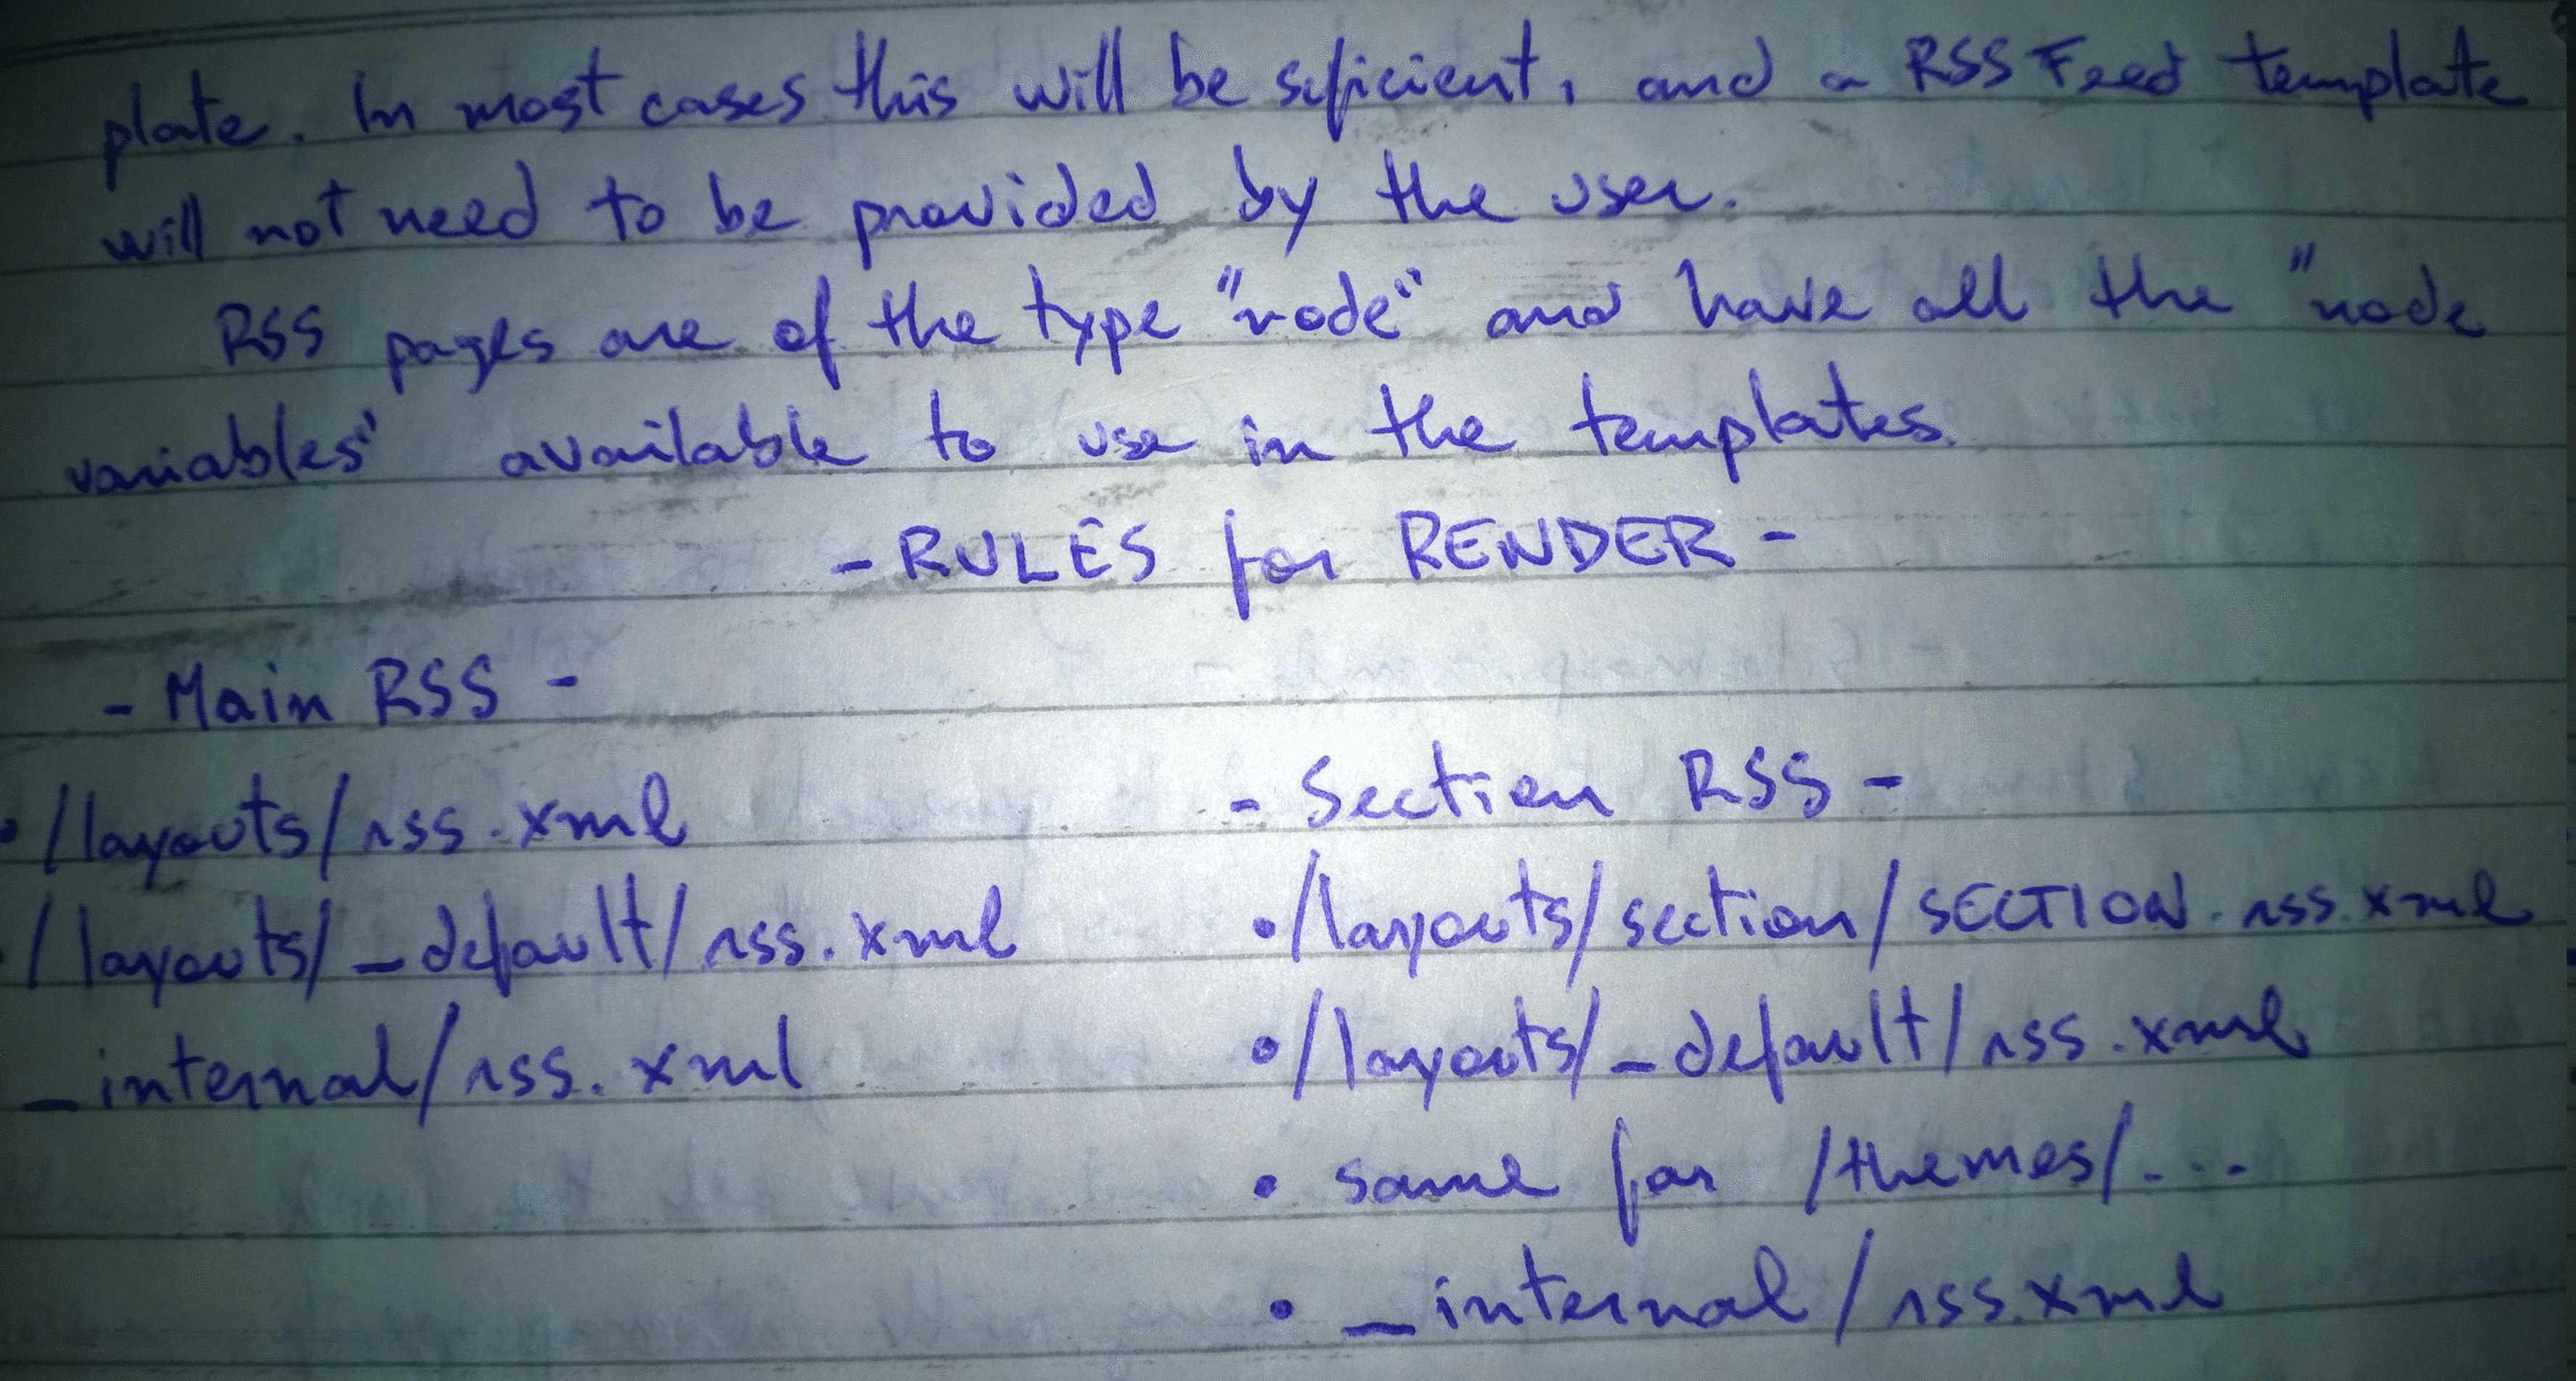 plate. In most cases this will be suficient, and a RSS Feed template
will not need to be provided by the user.
RSS pages are of the type "node" and have all the "node
variables" available to use in the templates.
- RULES for RENDER -
- Main RSS -
• /layouts/rss.xml
• /layouts/_default/rss.xml
_internal/rss.xml
- Section RSS -
• /layouts/section/SECTION.rss.xml
• /layouts/_default/rss.xml
• same for /themes/...
• _internal/rss.xml